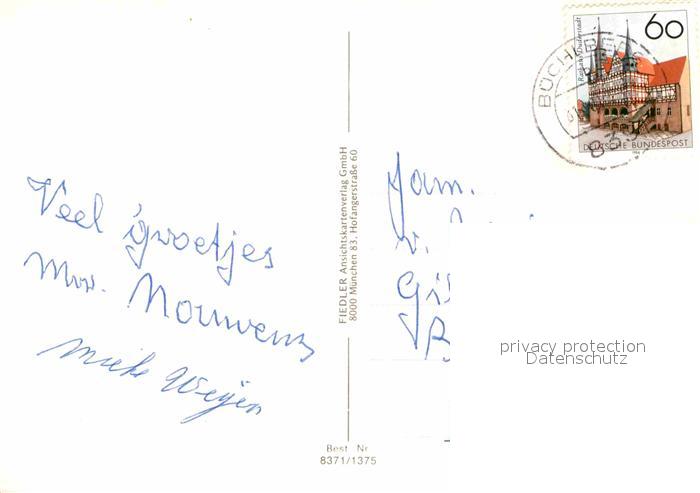 Veel groetjes
Mw. Nouwens
Mieke Weijen
FIEDLER Ansichtskartenverlag GmbH
8000 München 83, Hofangerstraße 60
Best Nr
8371/1375
Fam.
v.
60
Rathaus Duderstadt
DEUTSCHE BUNDESPOST
privacy protection
Datenschutz